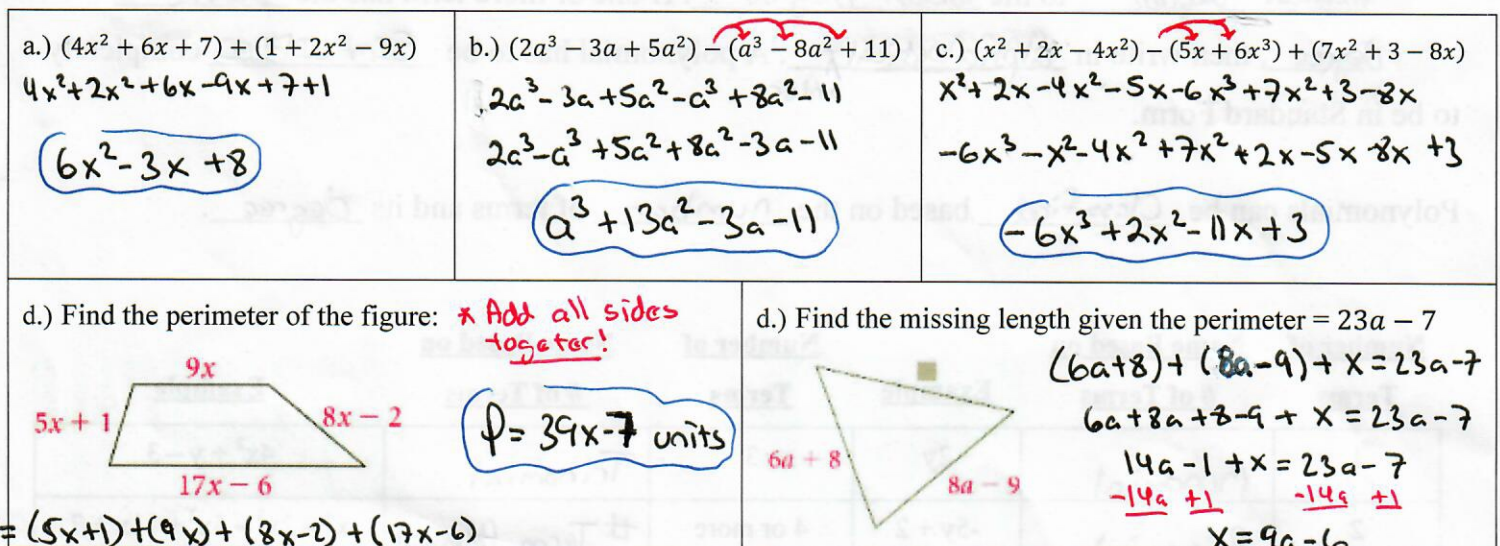 a.) (4x² + 6x + 7) + (1 + 2x² − 9x)
4x²+2x²+6x-9x+7+1
6x²-3x+8
b.) (2a³ − 3a + 5a²) − (a³ − 8a² + 11)
2a³-3a+5a²-a³+8a²-11
2a³-a³+5a²+8a²-3a-11
a³+13a²-3a-11
c.) (x² + 2x − 4x²) − (5x + 6x³) + (7x² + 3 − 8x)
x²+2x-4x²-5x-6x³+7x²+3-8x
-6x³-x²-4x²+7x²+2x-5x 8x +3
-6x³+2x²-11x+3
d.) Find the perimeter of the figure:
* Add all sides
togeter!
9x
5x + 1
8x − 2
17x − 6
P= 39x-7 units
= (5x+1)+(9x)+(8x-2)+(17x-6)
d.) Find the missing length given the perimeter = 23a − 7
6a + 8
8a − 9
(6a+8)+(8a-9)+x=23a-7
6a+8a+8-9+x=23a-7
14a-1+x=23a-7
-14a +1 -14a +1
x=9a-6